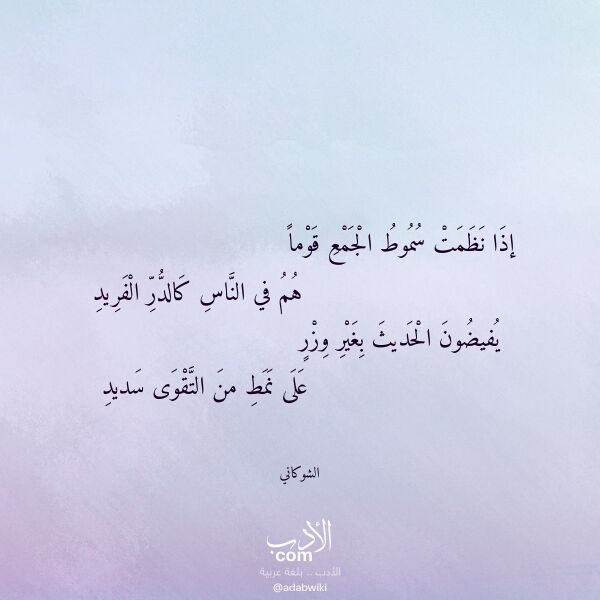 إذَا نَظَمَتْ سُمُوطُ الْجَمْعِ قَوْماً
هُمُ في النَّاسِ كَالدُّرِّ الْفَرِيدِ
يُفيضُونَ الْحَديثَ بِغَيْرِ وِزْرٍ
عَلَى نَمَطِ منَ التَّقْوَى سَديدِ
الشوكاني
الأدب
com
الأدب .. بلغة عربية
@adabwiki